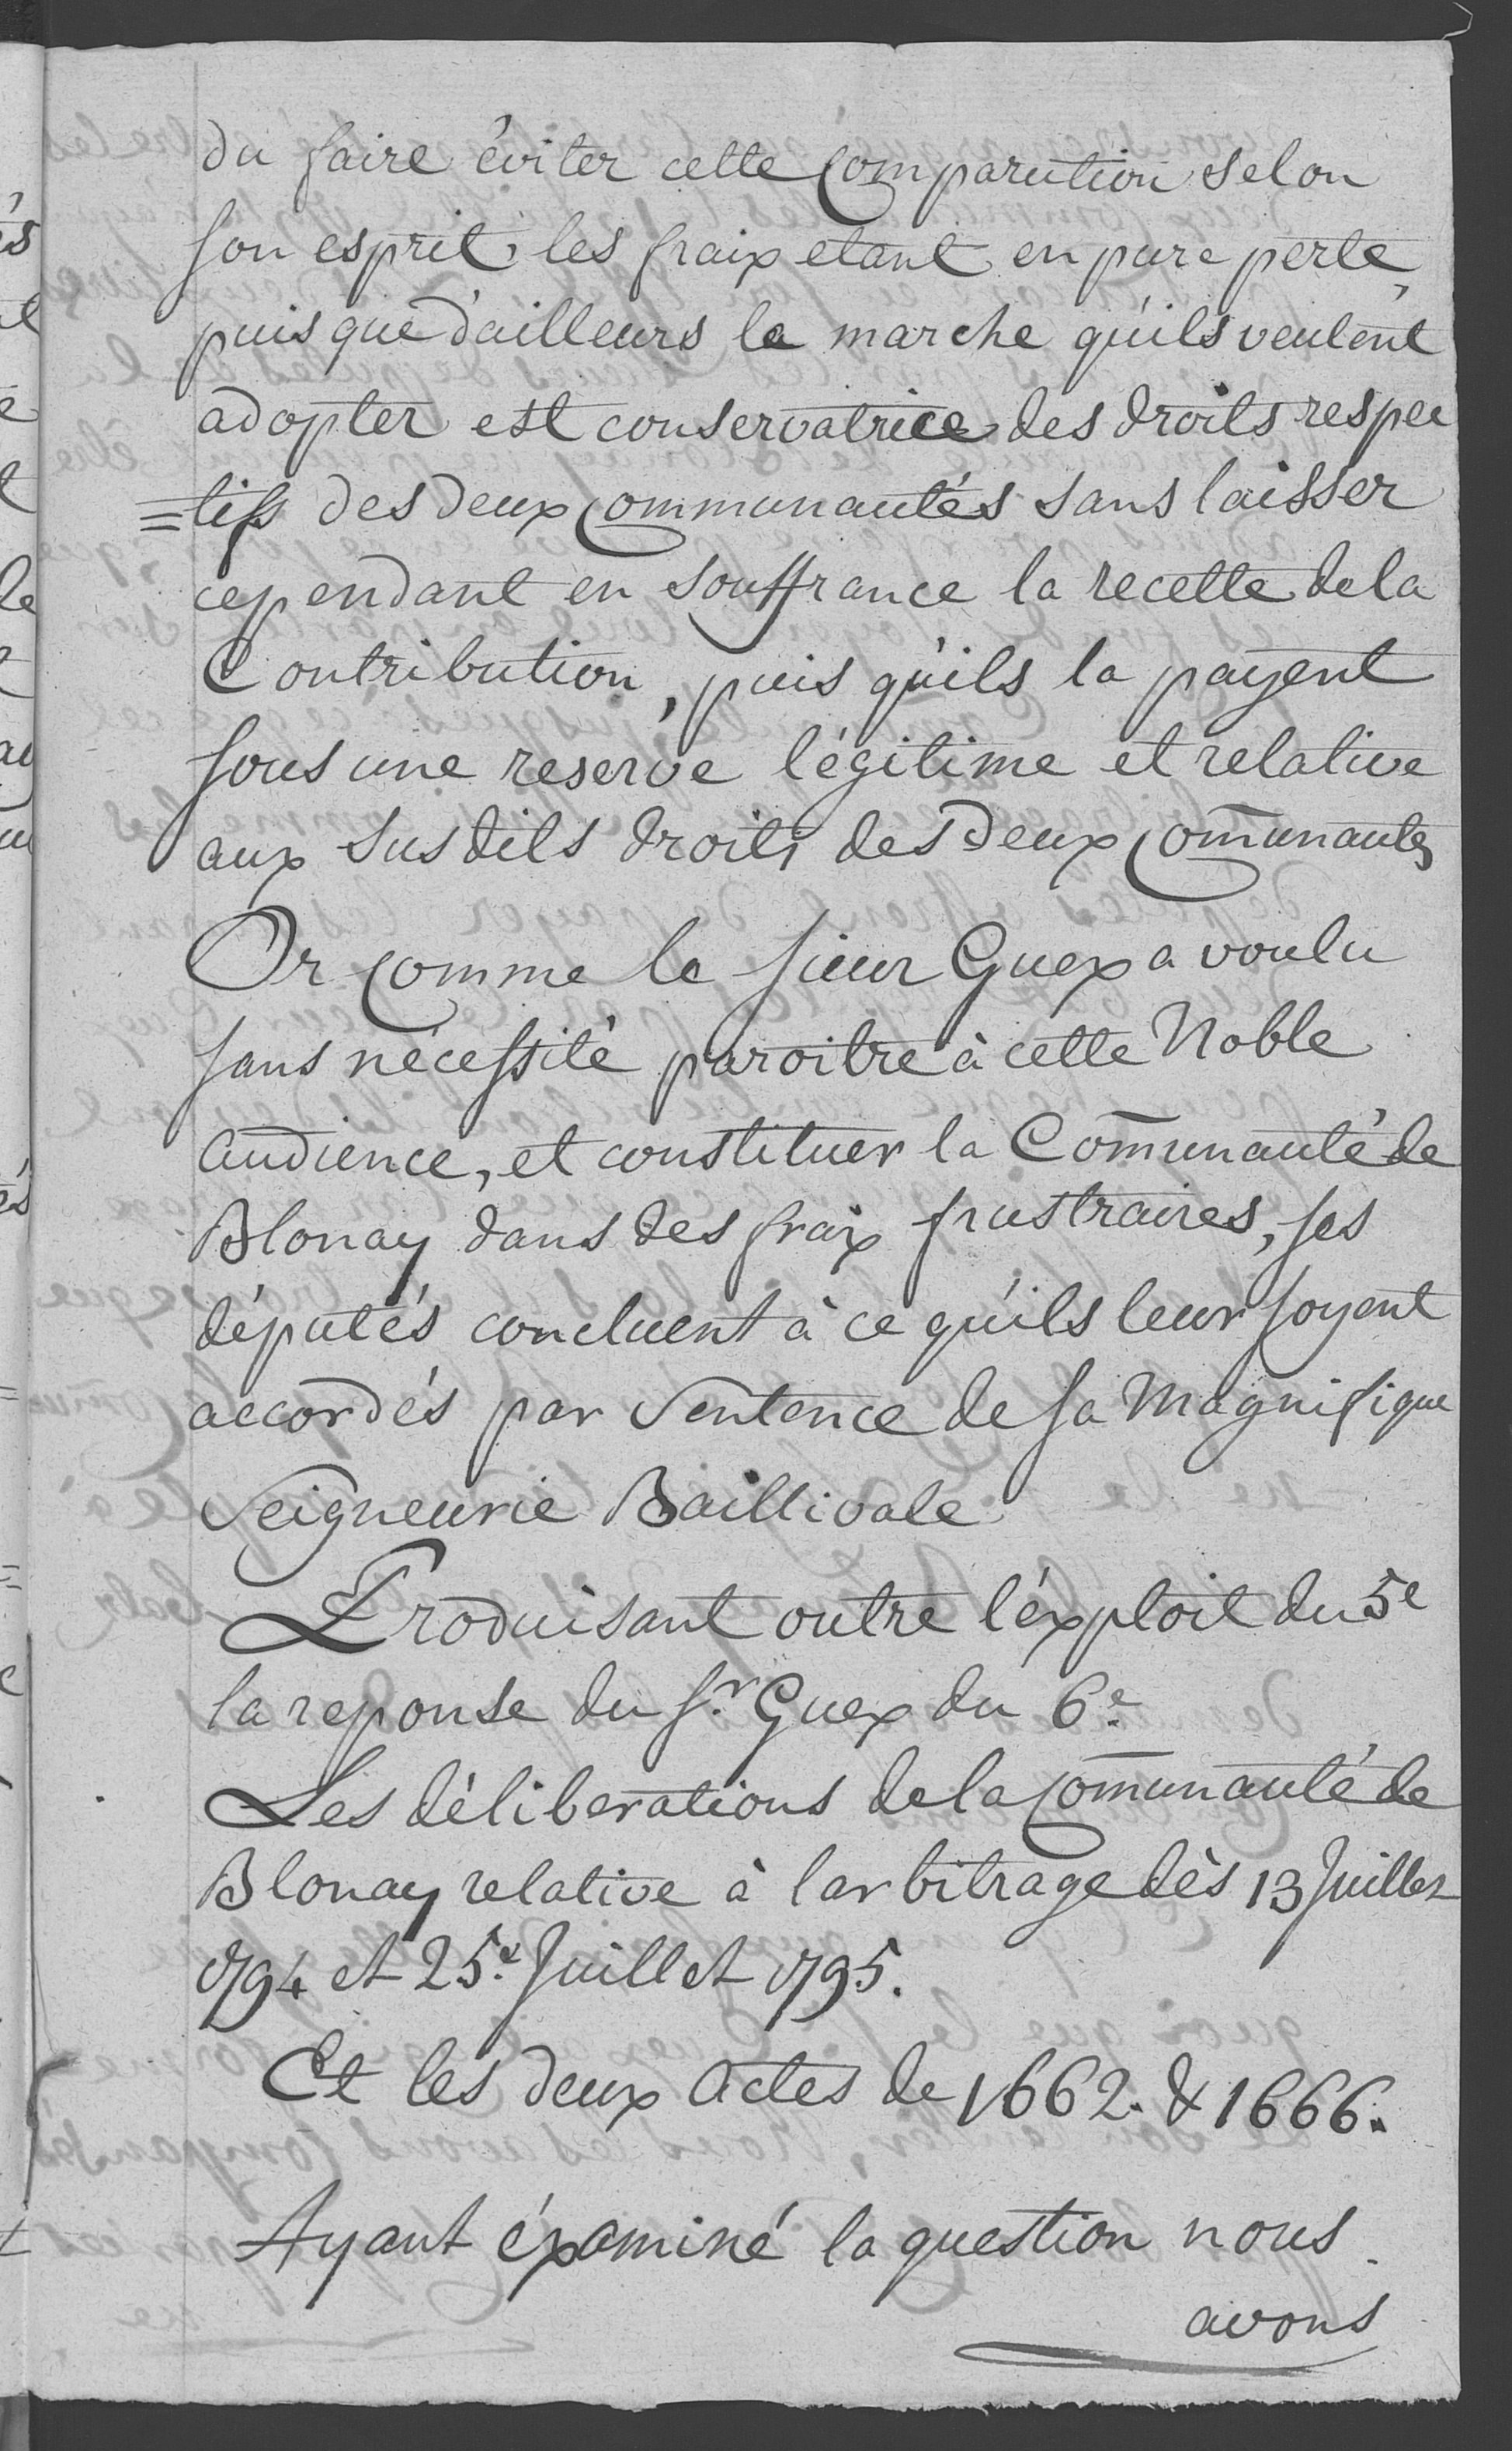 du faire éviter cette Comparution selon
son esprit, les fraix etant en pure perte,
puis que d'ailleurs la marche qu'ils veulent
adopter est conservatrice des droits respec
=tifs des deux Communautés sans laisser
cependant en souffrance la recette de la
Contribution, puis qu'ils la payent
sous une reserve légitime et relative
aux susdits droits des deux Com̄unautés
Or Comme le sieur Guex a voulu
sans nécessité paroitre à cette Noble
audience, et constituer la Com̄unauté de
Blonay dans des fraix frustraires, ses
députés concluent à ce qu'ils leur soyent
accordés par Sentence de sa Magnifique
Seigneurie Baillivale
Produisant outre l'éxploit du 5e
la reponse du Sr. Guex du 6e
Les déliberations de la Com̄unauté de
Blonay relative à larbitrage dès 13 Juillet
1794 et 25e Juillet 1795.
Et les deux actes de 1662. & 1666.
Ayant éxaminé la question nous
avons